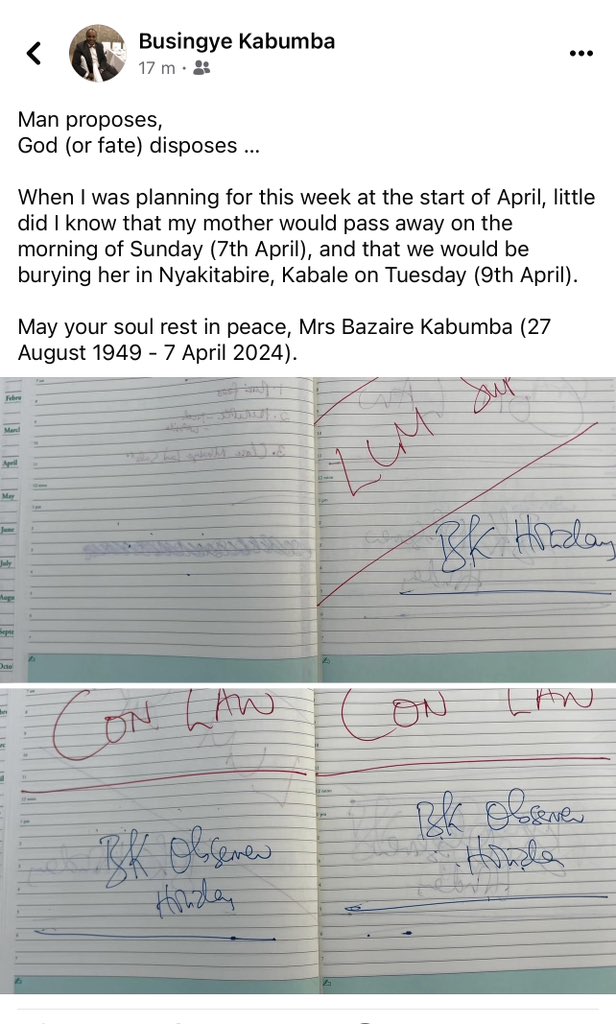 Busingye Kabumba
17 m ·
Man proposes,
God (or fate) disposes ...
When I was planning for this week at the start of April, little
did I know that my mother would pass away on the
morning of Sunday (7th April), and that we would be
burying her in Nyakitabire, Kabale on Tuesday (9th April).
May your soul rest in peace, Mrs Bazaire Kabumba (27
August 1949 - 7 April 2024).
March
April
May
June
July
LUM
BK Holiday
CON LAW
CON LAW
BK Observer
Holiday
BK Observer
Holiday